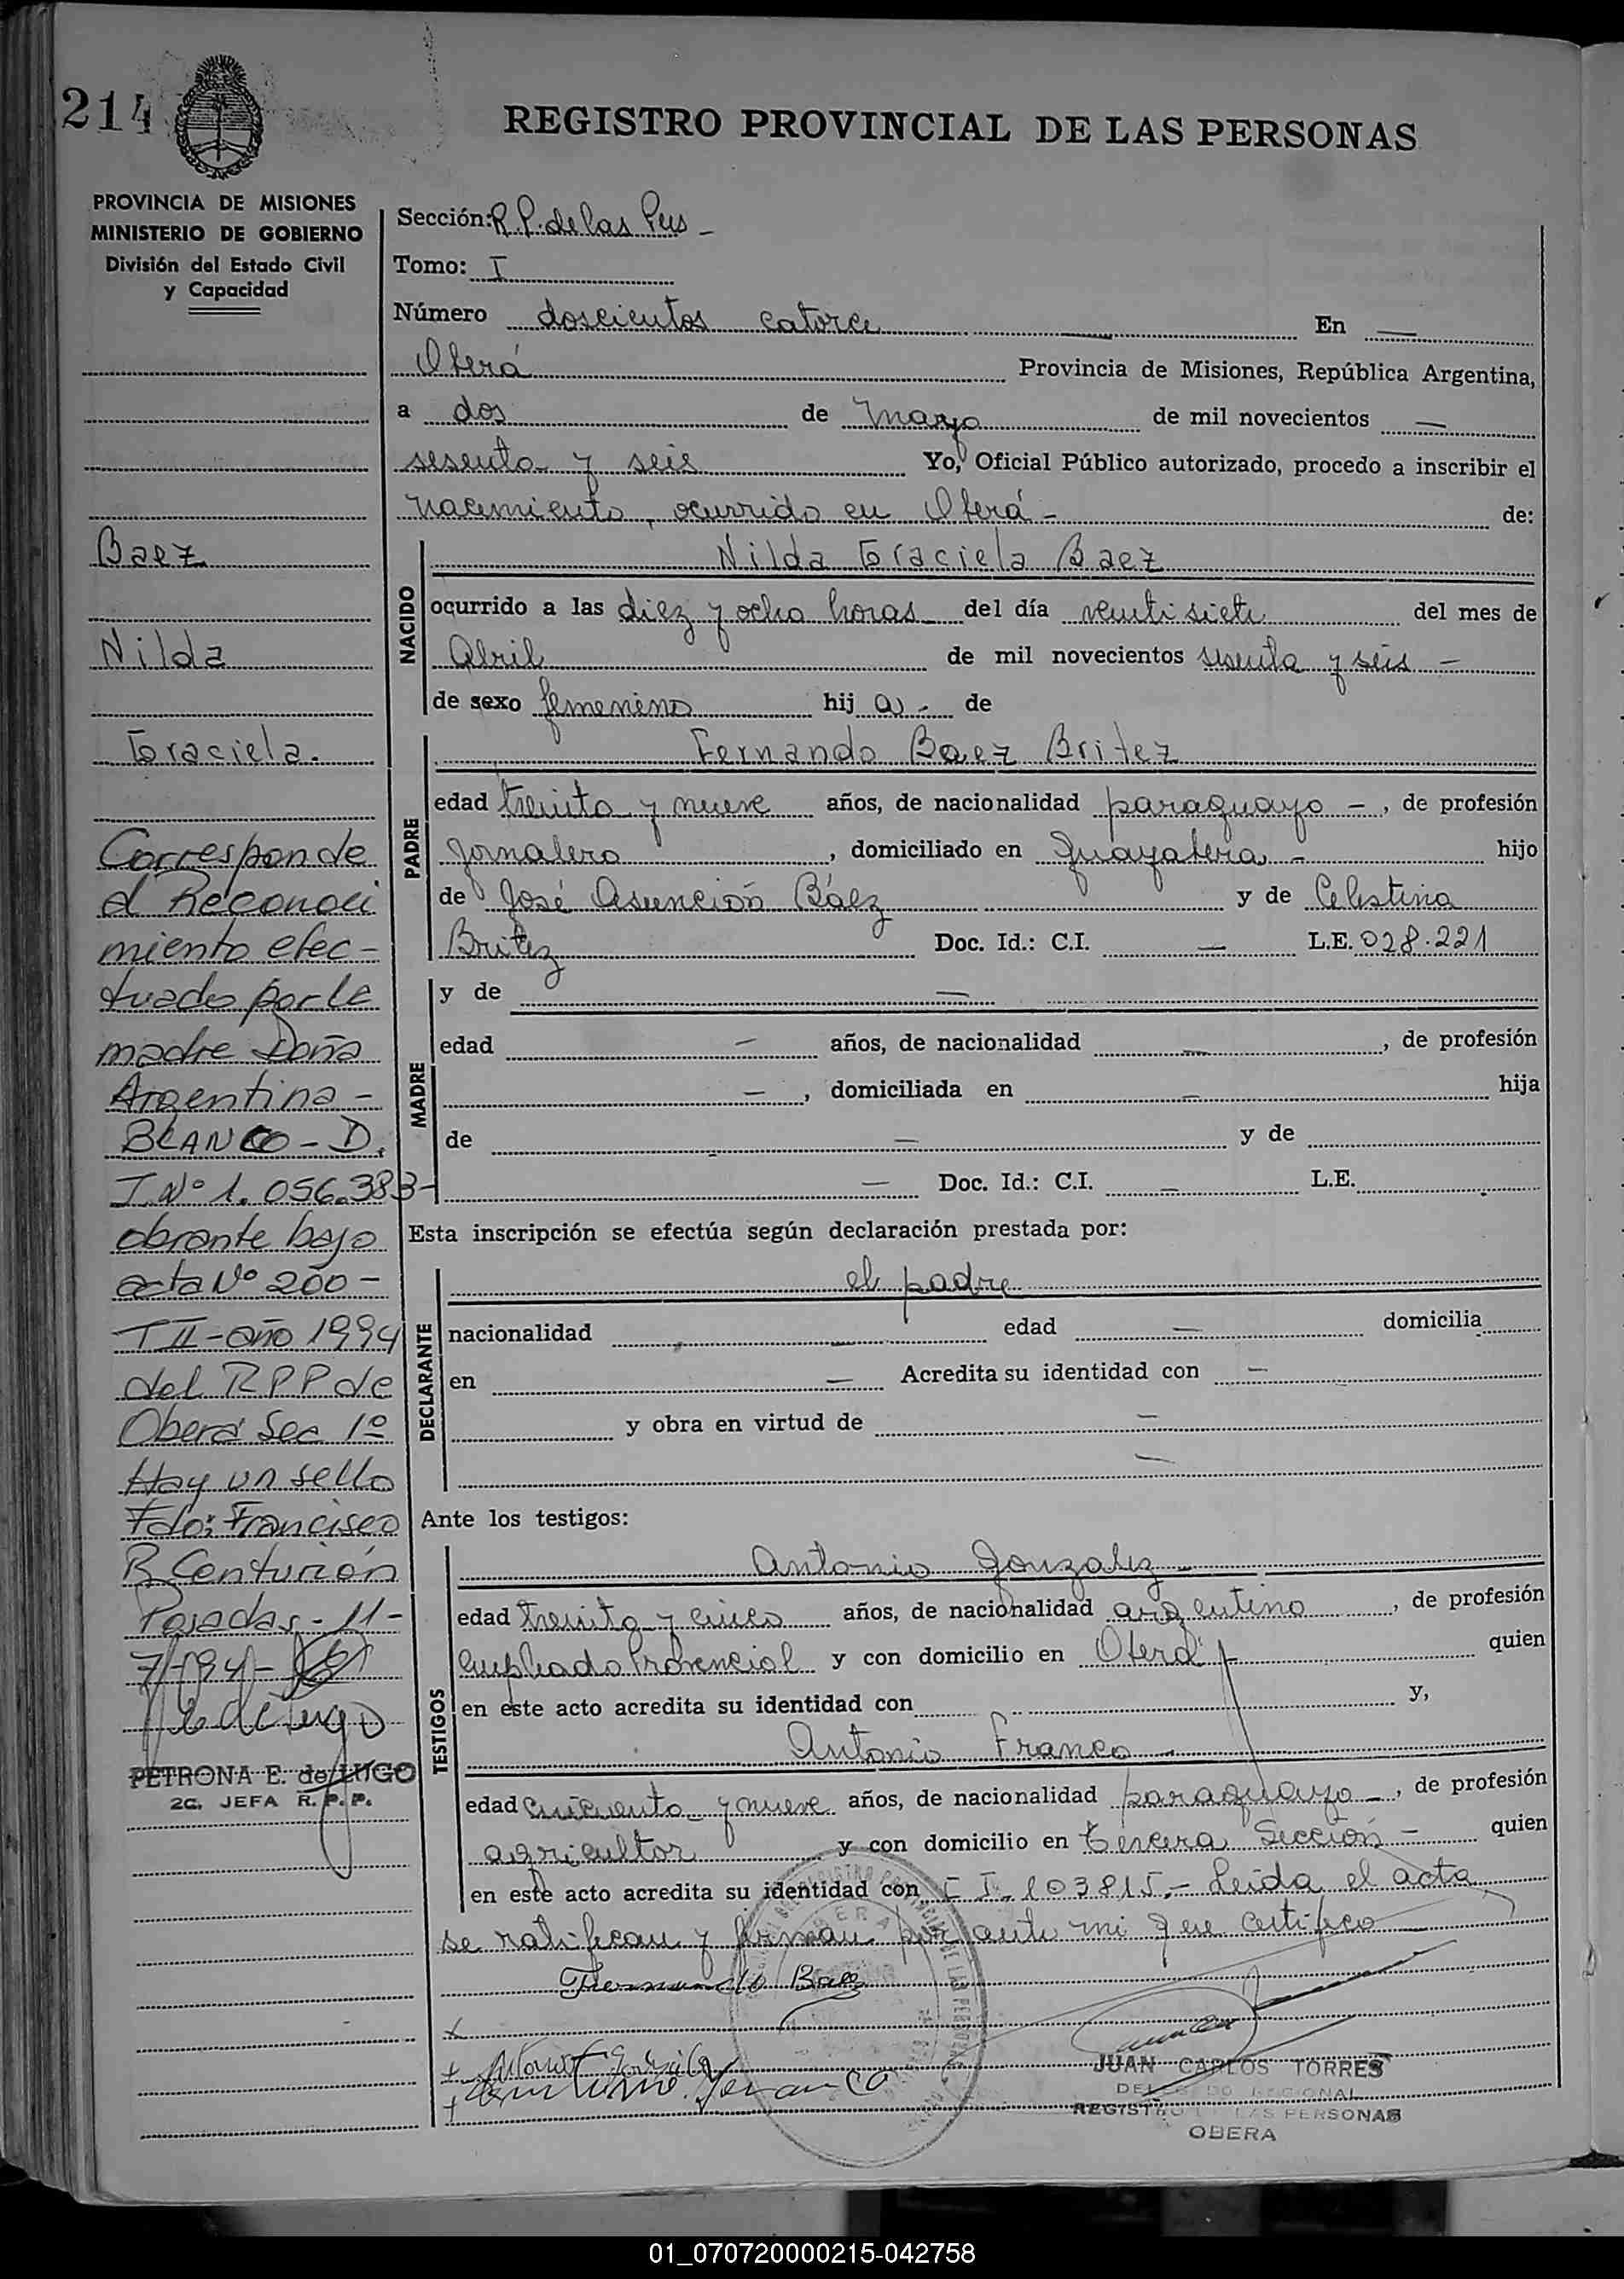 214
REGISTRO PROVINCIAL DE LAS PERSONAS
PROVINCIA DE MISIONES
MINISTERIO DE GOBIERNO
División del Estado Civil
y Capacidad
Baez
Nilda
Graciela.
Corresponde
al Reconoci
miento efec-
tuado por la
madre Doña
Argentina-
BLANCO-D.
I.Nº 1.056.383-
obrante bajo
acta Nº 200-
T II-año 1994
del RPP de
Oberá Sec 1º
Hay un sello
Fdo: Francisco
R Centurión
Posadas-11-
7-94-
PETRONA E. de LUGO
2C. JEFA R. P. P.
Sección: R.P. de las Pers -
Tomo: I
Número doscientos catorce — En —
Oberá Provincia de Misiones, República Argentina,
a dos de mayo de mil novecientos —
sesenta y seis Yo, Oficial Público autorizado, procedo a inscribir el
nacimiento, ocurrido en Oberá - de:
NACIDO
Nilda Graciela Baez
ocurrido a las diez y ocho horas del día veintisiete del mes de
Abril de mil novecientos sesenta y seis -
de sexo femenino hij a - de
PADRE
Fernando Baez Britez
edad treinta y nueve años, de nacionalidad paraguayo -, de profesión
Jornalero, domiciliado en Guayabera - hijo
de José Asunción Báez y de Celestina
Britez Doc. Id.: C.I. — L.E. 028.221
MADRE
y de —
edad — años, de nacionalidad —, de profesión
—, domiciliada en — hija
de — y de
— Doc. Id.: C.I. — L.E.
Esta inscripción se efectúa según declaración prestada por:
DECLARANTE
el padre
nacionalidad — edad — domicilia
en — Acredita su identidad con —
y obra en virtud de —
—
Ante los testigos:
TESTIGOS
Antonio Gonzalez
edad treinta y cinco años, de nacionalidad argentino, de profesión
empleado Provincial y con domicilio en Oberá quien
en este acto acredita su identidad con y,
Antonio Franco
edad cincuenta y nueve años, de nacionalidad paraguayo -, de profesión
agricultor y con domicilio en tercera Sección - quien
en este acto acredita su identidad con C I. 103815.- Leida el acta
se ratifican y firman por ante mi que certifico
Fernando Baez
Antonio Gonzalez
Antonio Franco
JUAN CARLOS TORRES
REGISTRO LAS PERSONAS
OBERA
01_070720000215-042758